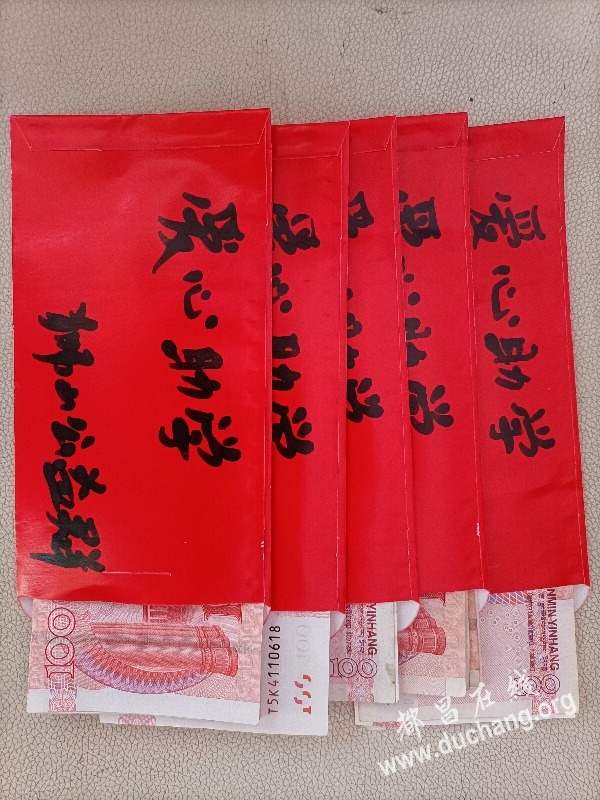 爱心助学
狮山公益群
爱心助学
助学
助学
爱心助学
100
T5K4110618
100
100
NMIN YINHANG
100
都昌在线
www.duchang.org